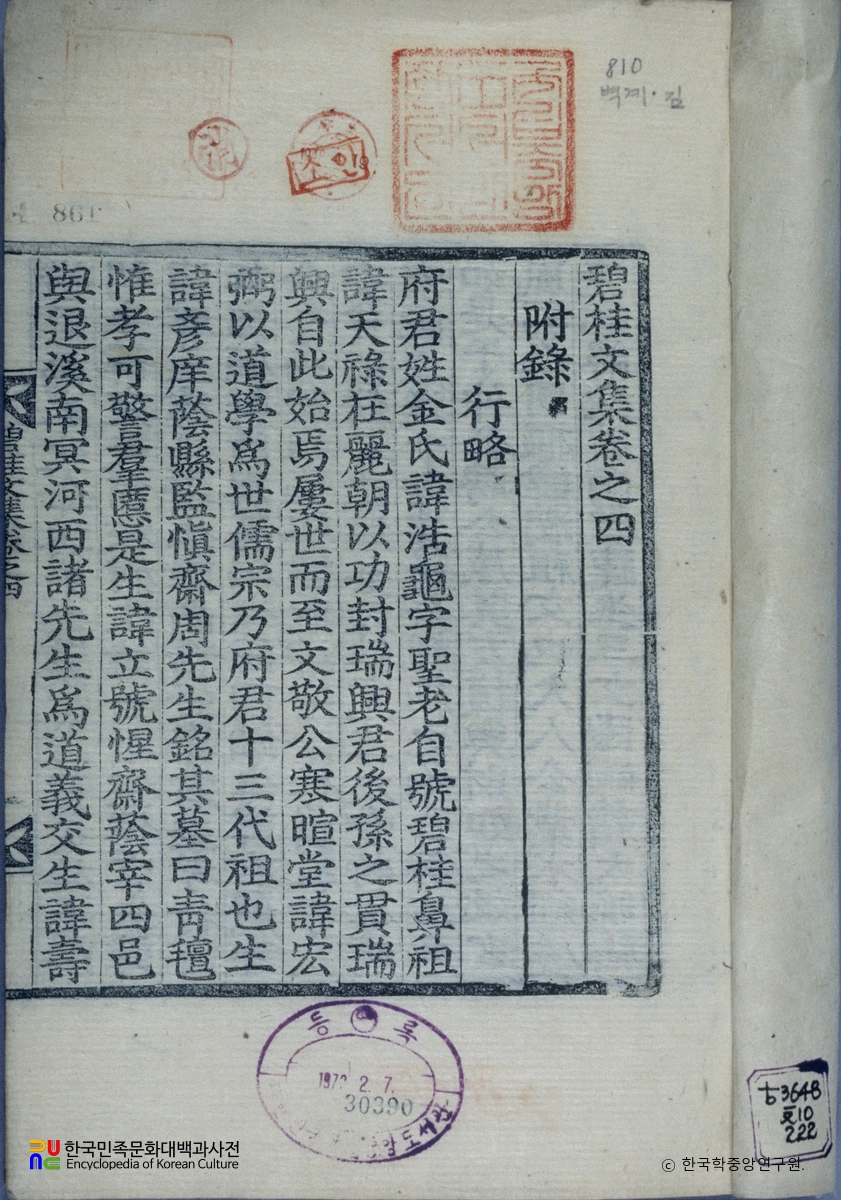 碧桂文集卷之四
附錄
行略
府君姓金氏諱浩龜字聖老自號碧桂鼻祖
諱天祿在麗朝以功封瑞興君後孫之貫瑞
興自此始焉屢世而至文敬公寒暄堂諱宏
弼以道學爲世儒宗乃府君十三代祖也生
諱彥庠蔭縣監愼齋周先生銘其墓曰靑氊
惟孝可警羣慝是生諱立號惺齋蔭宰四邑
與退溪南冥河西諸先生爲道義交生諱壽
碧桂文集卷之四
810
벽계·김
861
조인
등록
2. 7.
30390
도서관
3648
10
222
한국민족문화대백과사전
Encyclopedia of Korean Culture
ⓒ 한국학중앙연구원.